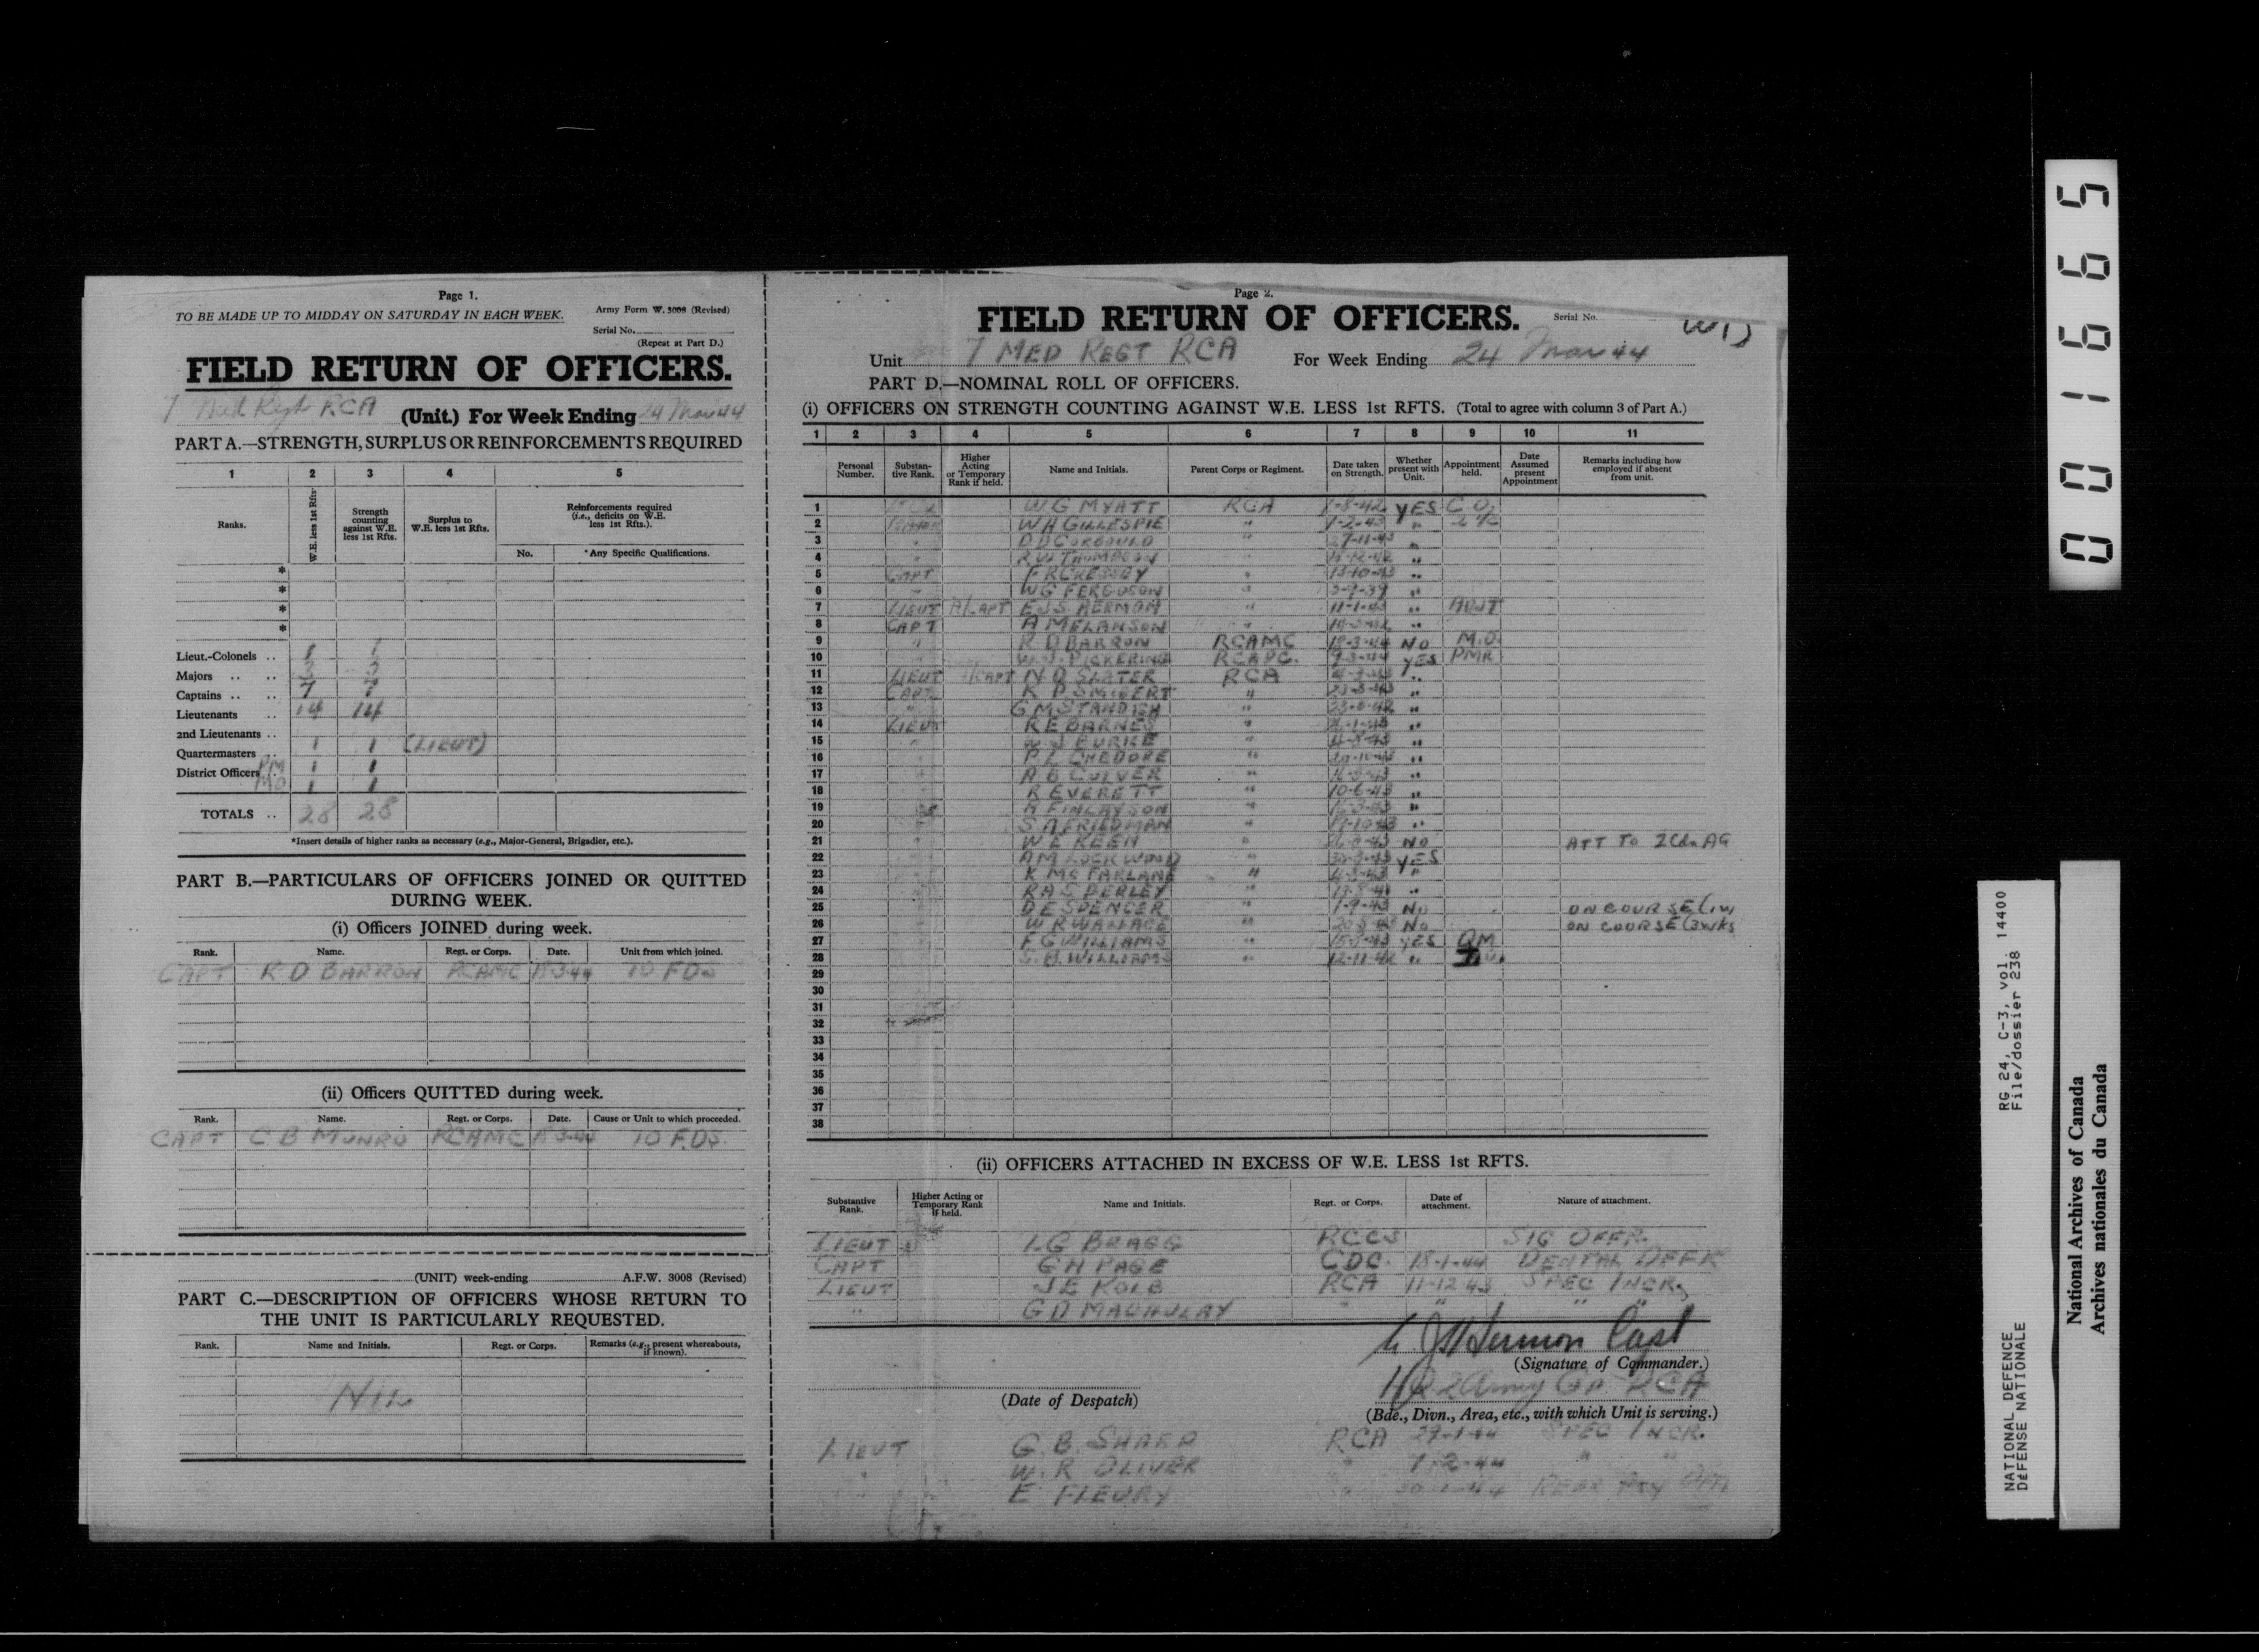 Page 1.
TO BE MADE UP TO MIDDAY ON SATURDAY IN EACH WEEK.
Army Form W. 3008 (Revised)
Serial No.
(Repeat at Part D.)
FIELD RETURN OF OFFICERS.
7 Med Regt RCA (Unit.) For Week Ending 24 Mar 44
PART A.—STRENGTH, SURPLUS OR REINFORCEMENTS REQUIRED
1 2 3 4 5
Ranks. W.E. less 1st Rfts. Strength counting against W.E. less 1st Rfts. Surplus to W.E. less 1st Rfts. Reinforcements required (i.e., deficits on W.E. less 1st Rfts.).
No. *Any Specific Qualifications.
*
*
*
*
Lieut.-Colonels .. 1 1
Majors .. .. 3 3
Captains .. .. 7 7
Lieutenants .. 14 14
2nd Lieutenants ..
Quartermasters .. 1 1 (LIEUT)
District Officers .. PM 1 1
MO 1 1
TOTALS .. 28 28
*Insert details of higher ranks as necessary (e.g., Major-General, Brigadier, etc.).
PART B.—PARTICULARS OF OFFICERS JOINED OR QUITTED
DURING WEEK.
(i) Officers JOINED during week.
Rank. Name. Regt. or Corps. Date. Unit from which joined.
CAPT R D BARRON RCAMC 18-3-44 10 FDS
(ii) Officers QUITTED during week.
Rank. Name. Regt. or Corps. Date. Cause or Unit to which proceeded.
CAPT C B MUNRO RCAMC 18-3-44 10 F.D.S.
(UNIT) week-ending A.F.W. 3008 (Revised)
PART C.—DESCRIPTION OF OFFICERS WHOSE RETURN TO
THE UNIT IS PARTICULARLY REQUESTED.
Rank. Name and Initials. Regt. or Corps. Remarks (e.g., present whereabouts, if known).
NIL
Page 2.
FIELD RETURN OF OFFICERS.
Serial No.
Unit 7 MED REGT RCA For Week Ending 24 Mar 44
PART D.—NOMINAL ROLL OF OFFICERS.
(i) OFFICERS ON STRENGTH COUNTING AGAINST W.E. LESS 1st RFTS. (Total to agree with column 3 of Part A.)
1 2 3 4 5 6 7 8 9 10 11
Personal Number. Substantive Rank. Higher Acting or Temporary Rank if held. Name and Initials. Parent Corps or Regiment. Date taken on Strength. Whether present with Unit. Appointment held. Date Assumed present Appointment Remarks including how employed if absent from unit.
1 W G MYATT RCA 1-8-42 YES C.O.
2 W H GILLESPIE " 1-2-43 " 2 I/C
3 " 27-11-43 "
4 R W THOMPSON " "
5 CAPT F R CRESSEY " 13-10-43 "
6 " W G FERGUSON " 3-9-39 "
7 LIEUT A/CAPT E J S HERMON " 11-1-43 " ADJT
8 CAPT A MELANSON " "
9 " R D BARRON RCAMC 18-3-44 NO M.O.
10 " W J PICKERING RCAPC. 9-3-44 YES PMR
11 LIEUT A/CAPT N O SLATER RCA "
12 CAPT K P SMIBERT " "
13 " G M STANDISH " "
14 LIEUT R E BARNES " "
15 " W J BURKE " 4-8-43 "
16 P L CHEDORE " "
17 A B CULVER " 16-3-43 "
18 R EVERETT " 10-6-43 "
19 FINLAYSON " 16-3-43 "
20 S A FRIEDMAN " "
21 W E KEEN " NO ATT TO 2 Cdn AG
22 A M LOCKWOOD YES
23 K MCFARLANE " 4-8-43 "
24 R A S PERLEY " "
25 D E SPENCER " 1-9-43 NO ON COURSE
26 W R WALLACE " NO ON COURSE (3 WKS
27 F G WILLIAMS " 15-9-43 YES QM
28 S. B. WILLIAMS " 12-11-42 "
29
30
31
32
33
34
35
36
37
38
(ii) OFFICERS ATTACHED IN EXCESS OF W.E. LESS 1st RFTS.
Substantive Rank. Higher Acting or Temporary Rank if held. Name and Initials. Regt. or Corps. Date of attachment. Nature of attachment.
LIEUT I. G BRAGG RCCS SIG OFFR.
CAPT G H PAGE CDC. 18-1-44 DENTAL OFFR
LIEUT J E KOLB RCA 11-12 43 SPEC INCR.
" G D MACAULAY " " " "
E J S Hermon Capt
(Signature of Commander.)
HQ 2 Army Gp. RCA
(Date of Despatch)
(Bde., Divn., Area, etc., with which Unit is serving.)
LIEUT G. B. SHARP RCA 29-1-44 SPEC INCR.
" W. R OLIVER " 1-2-44 " "
E FLEURY
0001665
RG 24, C-3, vol. 14400
File/dossier 238
NATIONAL DEFENCE
DÉFENSE NATIONALE
National Archives of Canada
Archives nationales du Canada